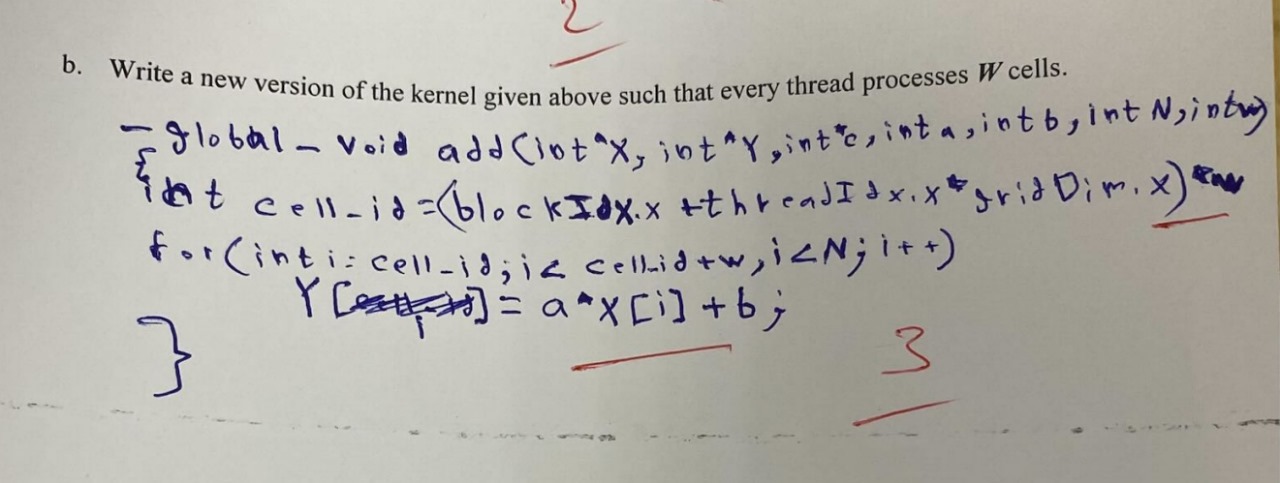 2
b. Write a new version of the kernel given above such that every thread processes W cells.
-global- void add(int*X, int*Y, int*c, int a, int b, int N, int w)
{
int cell-id=(blockIdx.x +threadIdx.x*gridDim.x)*w
for(int i= cell-id; i< cell-id+w, i<N; i++)
Y[i]= a*X[i]+b;
}
3